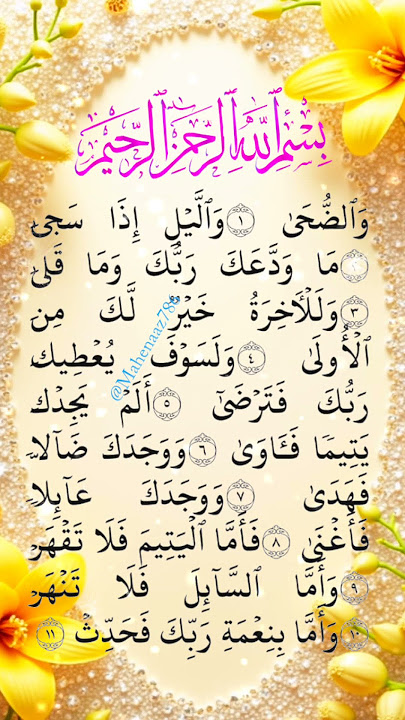 بِسْمِ ٱللَّهِ ٱلرَّحْمَٰنِ ٱلرَّحِيمِ
وَٱلضُّحَىٰ ١ وَٱلَّيْلِ إِذَا سَجَىٰ
٢ مَا وَدَّعَكَ رَبُّكَ وَمَا قَلَىٰ
٣ وَلَلْأَخِرَةُ خَيْرٌ لَّكَ مِنَ
ٱلْأُولَىٰ ٤ وَلَسَوْفَ يُعْطِيكَ
رَبُّكَ فَتَرْضَىٰٓ ٥ أَلَمْ يَجِدْكَ
يَتِيمًا فَـَٔاوَىٰ ٦ وَوَجَدَكَ ضَآلًّا
فَهَدَىٰ ٧ وَوَجَدَكَ عَآئِلًا
فَأَغْنَىٰ ٨ فَأَمَّا ٱلْيَتِيمَ فَلَا تَقْهَرْ
٩ وَأَمَّا ٱلسَّآئِلَ فَلَا تَنْهَرْ
١٠ وَأَمَّا بِنِعْمَةِ رَبِّكَ فَحَدِّثْ ١١
@Mahenaaz786